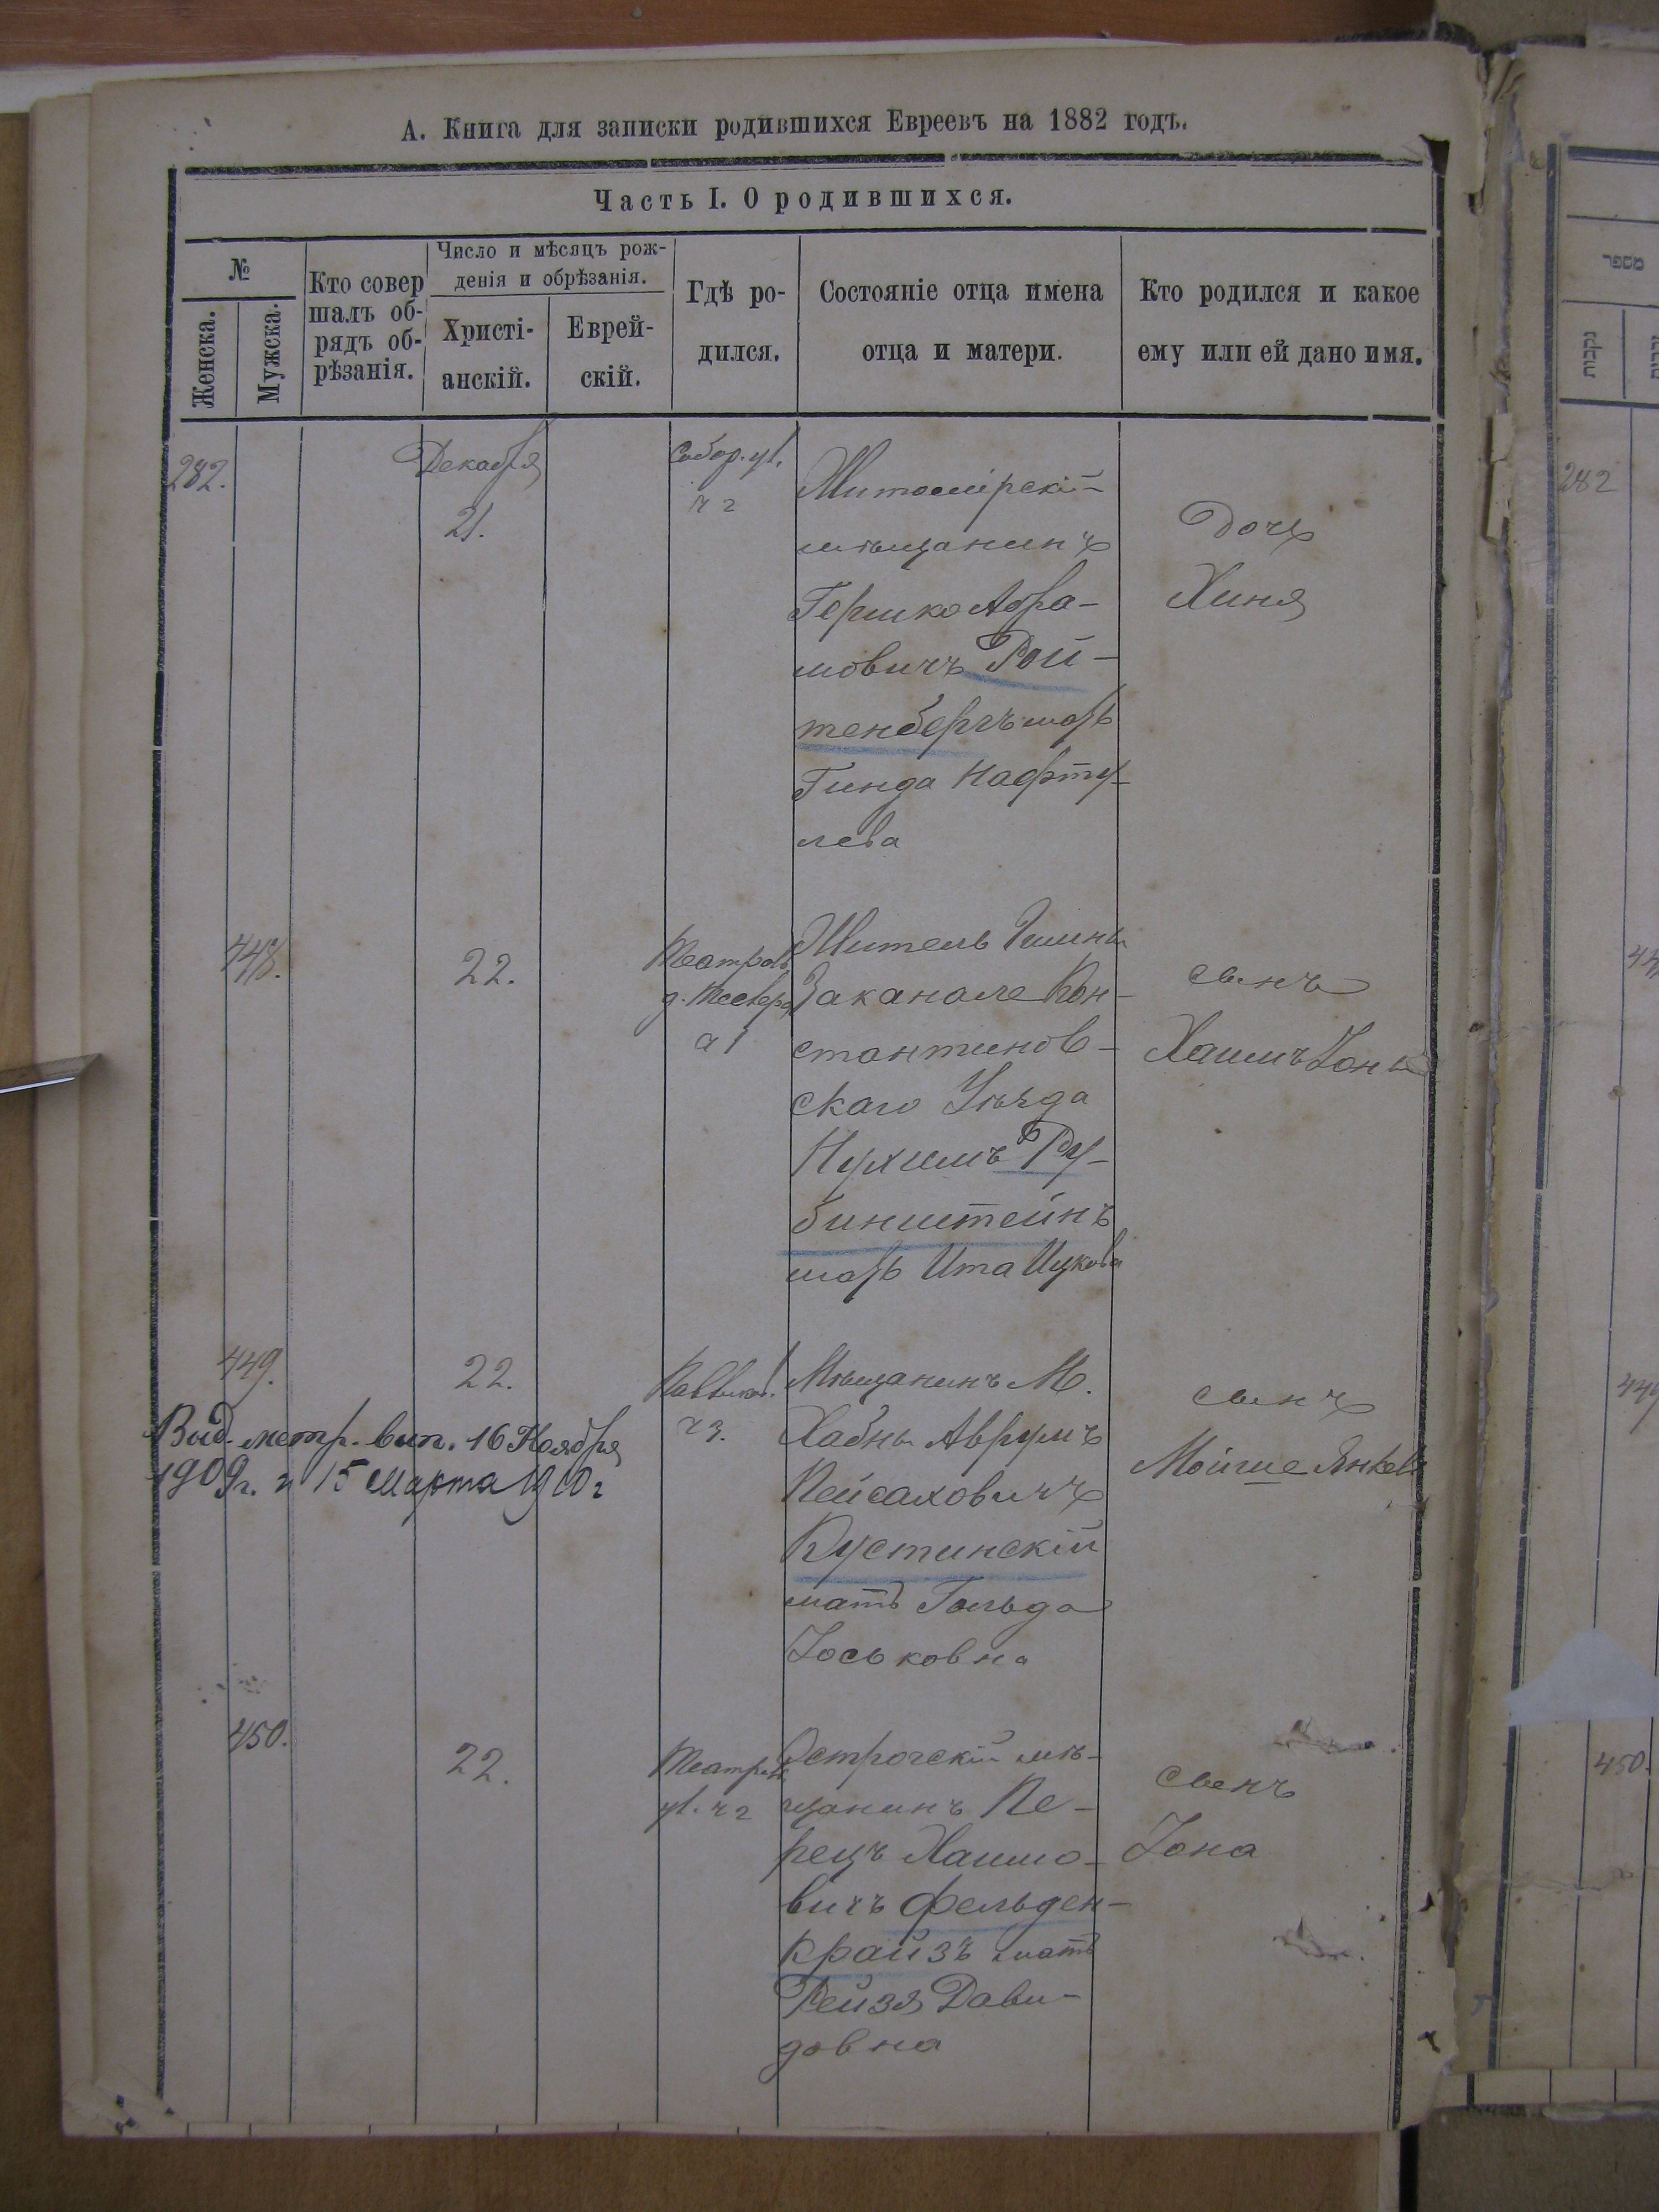 А. Книга для записки родившихся Евреевъ на 1882 годъ.
Часть I. О родившихся.
№
Женска.
Мужска.
Кто совер
шалъ об-
рядъ об-
рѣзанія.
Число и мѣсяцъ рож-
денія и обрѣзанія.
Христі-
анскій.
Еврей-
скій.
Гдѣ ро-
дился.
Состояніе отца имена
отца и матери.
Кто родился и какое
ему или ей дано имя.
282.
Декабря
21.
Собор. ул.
ч 2
Житомірскій
мѣщанинъ
Гершко Абра-
мовичъ Рой-
тенбергъ мать
Гинда Нафту-
лева
Дочь
Хиня
448.
22.
Театров
а 1
Житель
Заканале Кон-
стантинов-
скаго Уѣзда
Нухимъ Ру-
бинштейнъ
мать Ита Ицкова
сынъ
Хаимъ Іонъ
449.
22.
ч 3.
Мѣщанинъ М.
Хабны Аврумъ
Пейсаховичъ
Кустинскій
мать Гольда
Іоськовна
сынъ
Мойше Янкев
Выд. метр. вып. 16 Ноября
1909 г. и 15 Марта 1910 г
450.
22.
Театрал
ул. ч 2
Острогскій мѣ-
щанинъ Пе-
рецъ Хаимо-
вичъ Фельден-
крайзъ мать
Рейзя Дави-
довна
сынъ
Іона
מספר
נקבות
282
449
450.